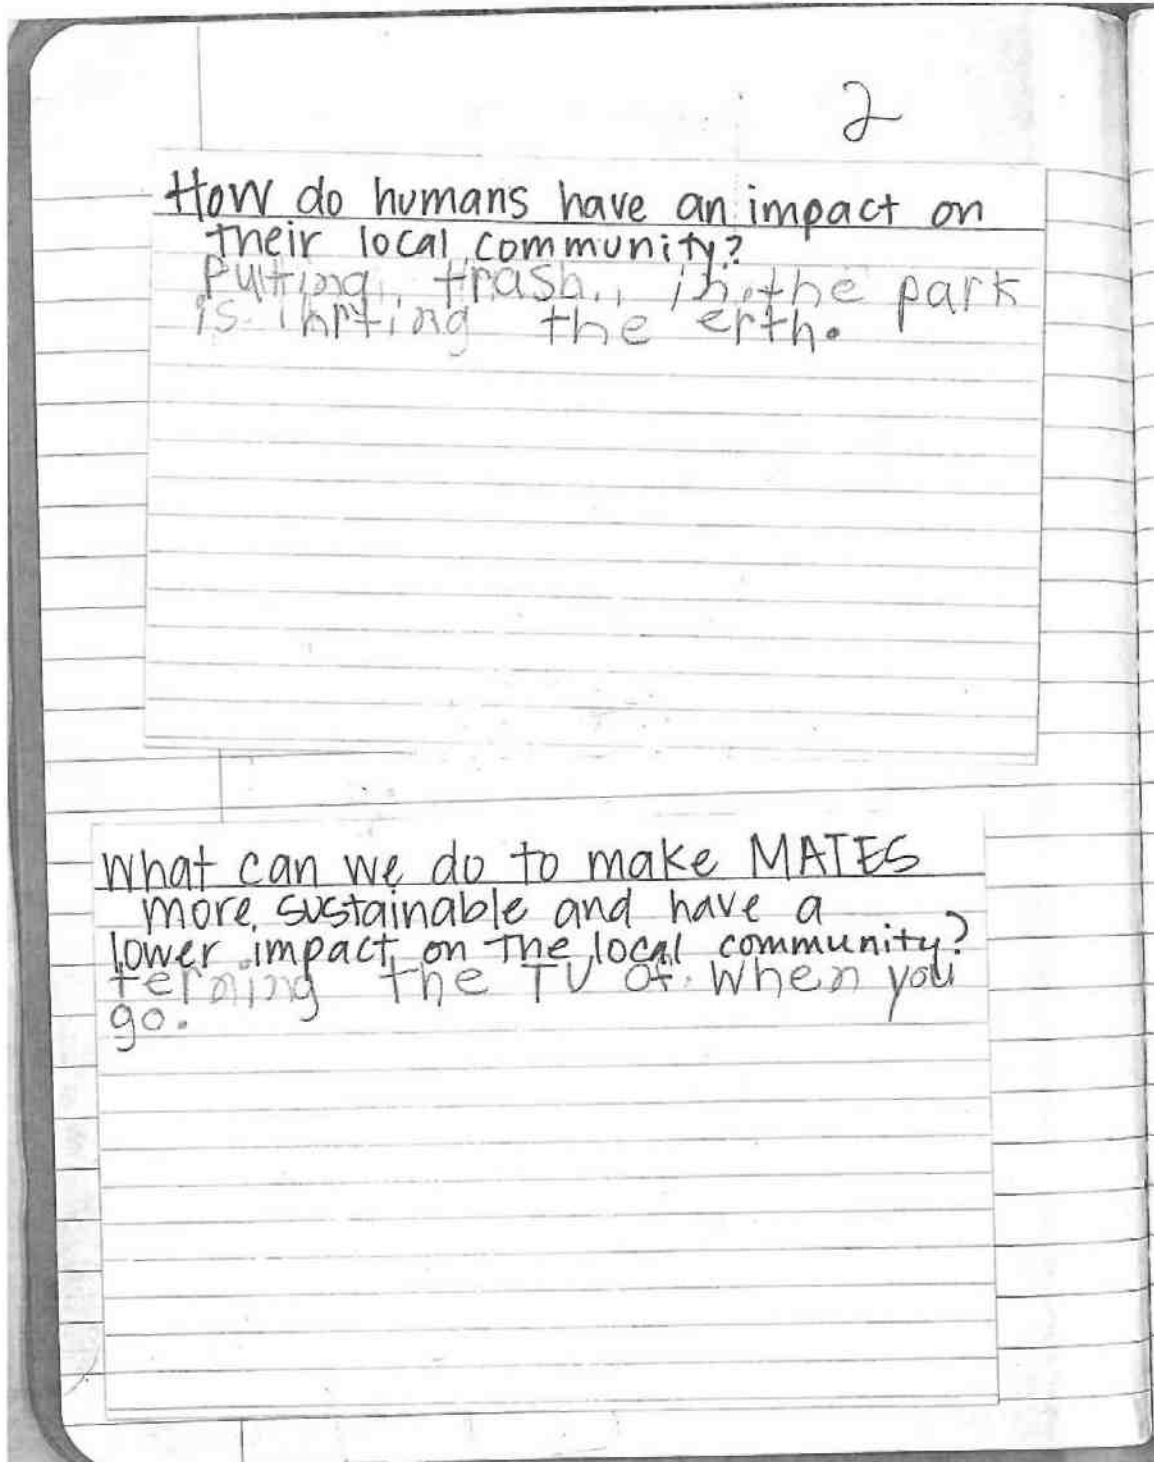 2
How do humans have an impact on
their local community?
Putting trash in the park
is hrting the erth.
What can we do to make MATES
more sustainable and have a
lower impact on the local community?
terning the TV of when you
go.